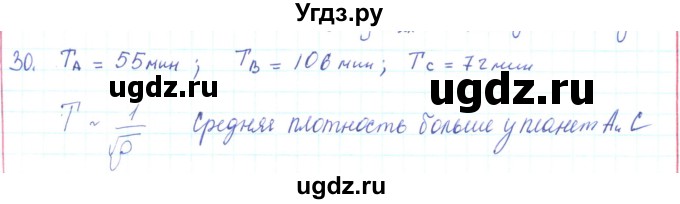 Угдз.ру
30. T_A = 55 мин ; T_B = 106 мин ; T_C = 72 мин
ugdz.ru ugdz.ru
T ~ 1/√ρ Средняя плотность больше у планет А и С
ugdz.ru ugdz.ru ugdz.ru